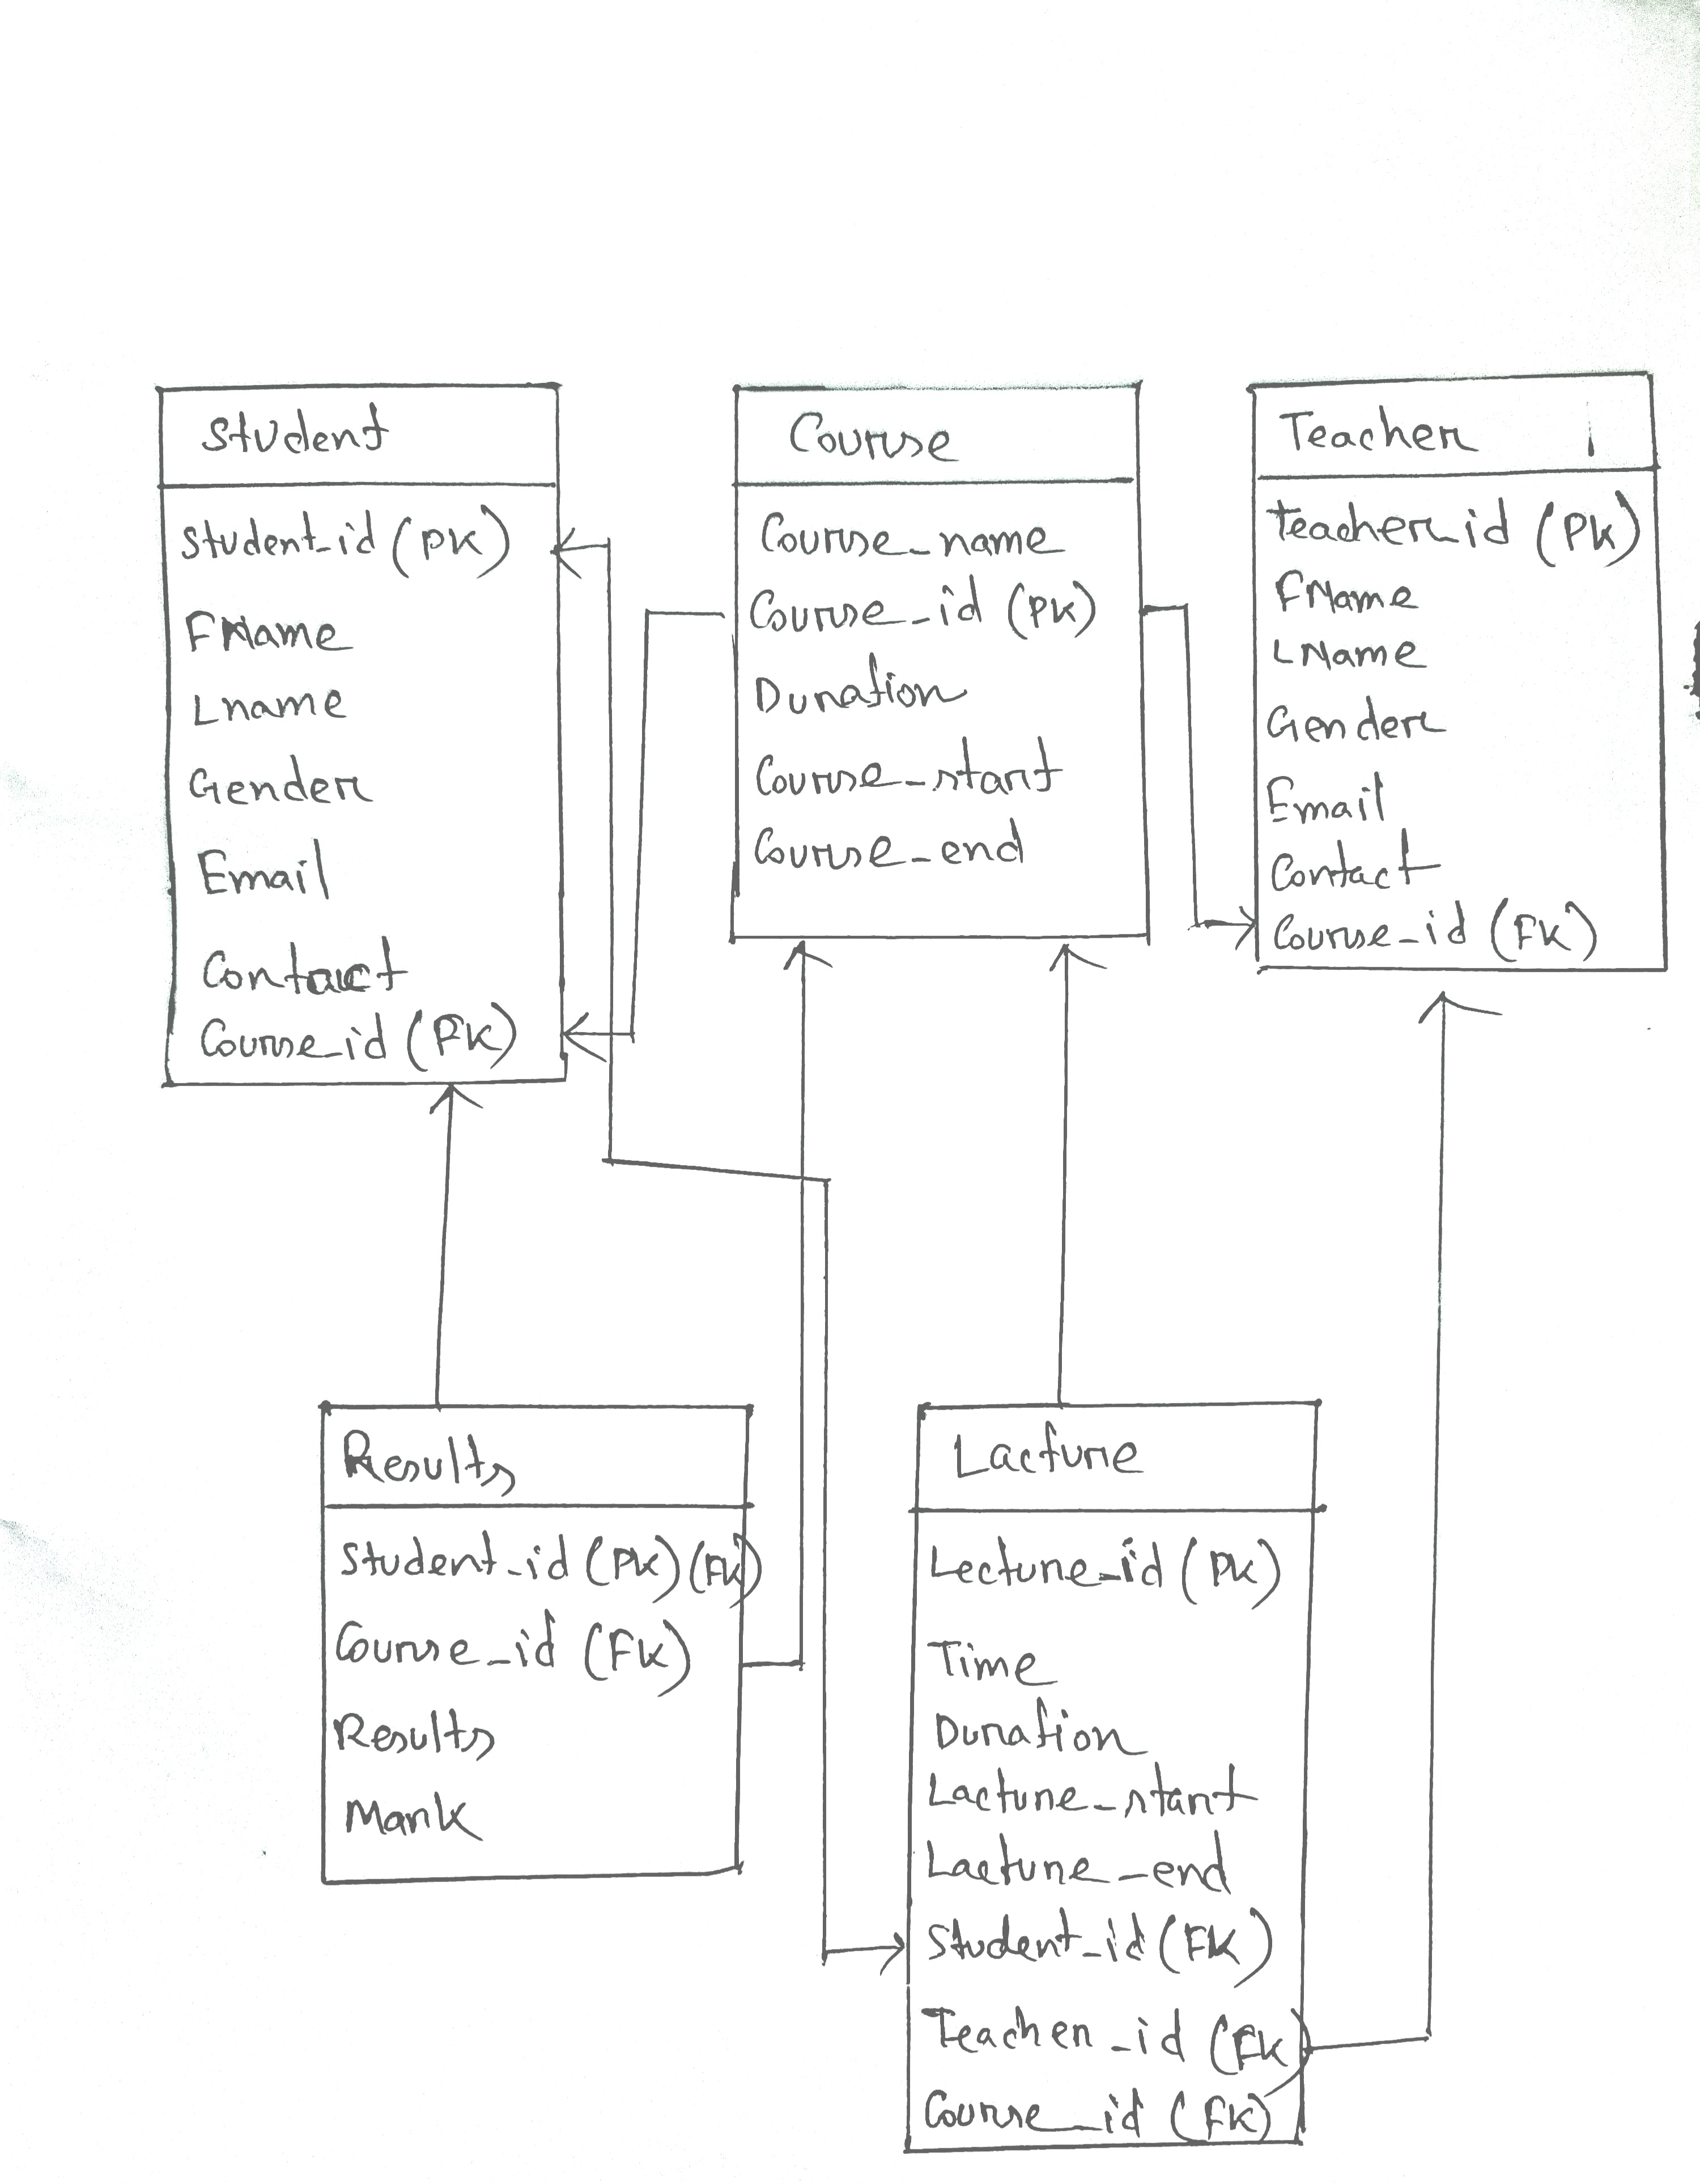 Student
Student_id (PK)
FName
Lname
Gender
Email
Contact
Course_id (FK)
Course
Course_name
Course_id (PK)
Duration
Course_start
Course_end
Teacher
Teacher_id (PK)
FName
LName
Gender
Email
Contact
Course_id (FK)
Results
Student_id (PK) (FK)
Course_id (FK)
Results
Mark
Lacture
Lecture_id (PK)
Time
Duration
Lacture_start
Lacture_end
Student_id (FK)
Teacher_id (FK)
Course_id (FK)